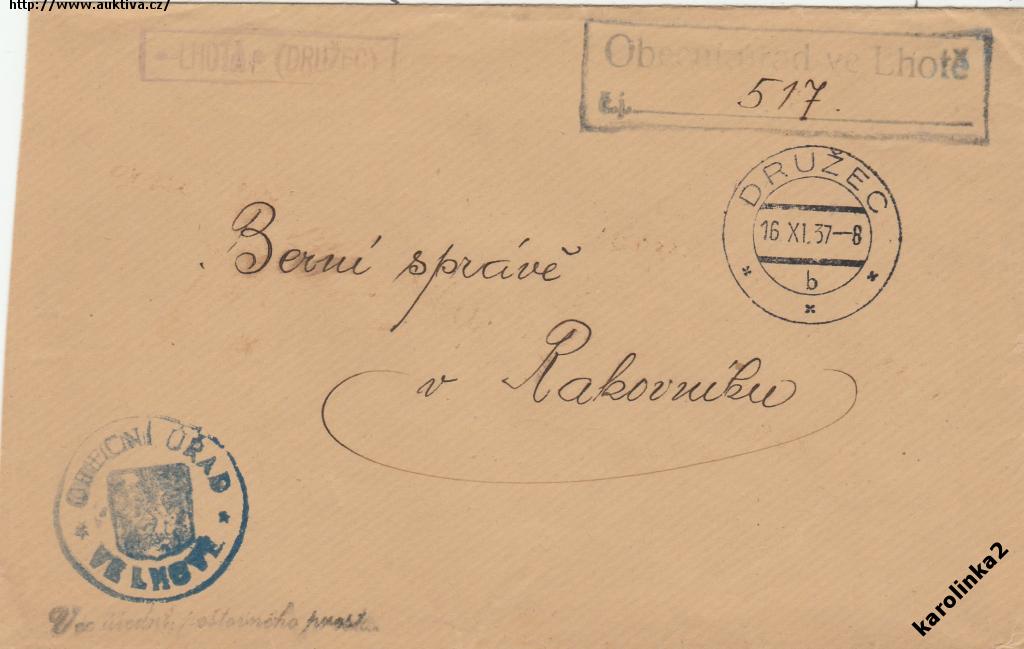 http://www.auktiva.cz/
LHOTA (DRUŽEC)
Obecní úřad ve Lhotě
č.j. 517.
DRUŽEC
16 XI. 37-8
b
Berní správě
v Rakovníku
OBECNÍ ÚŘAD
VE LHOTĚ
Věc úřední, poštovného prosta.
karolinka2